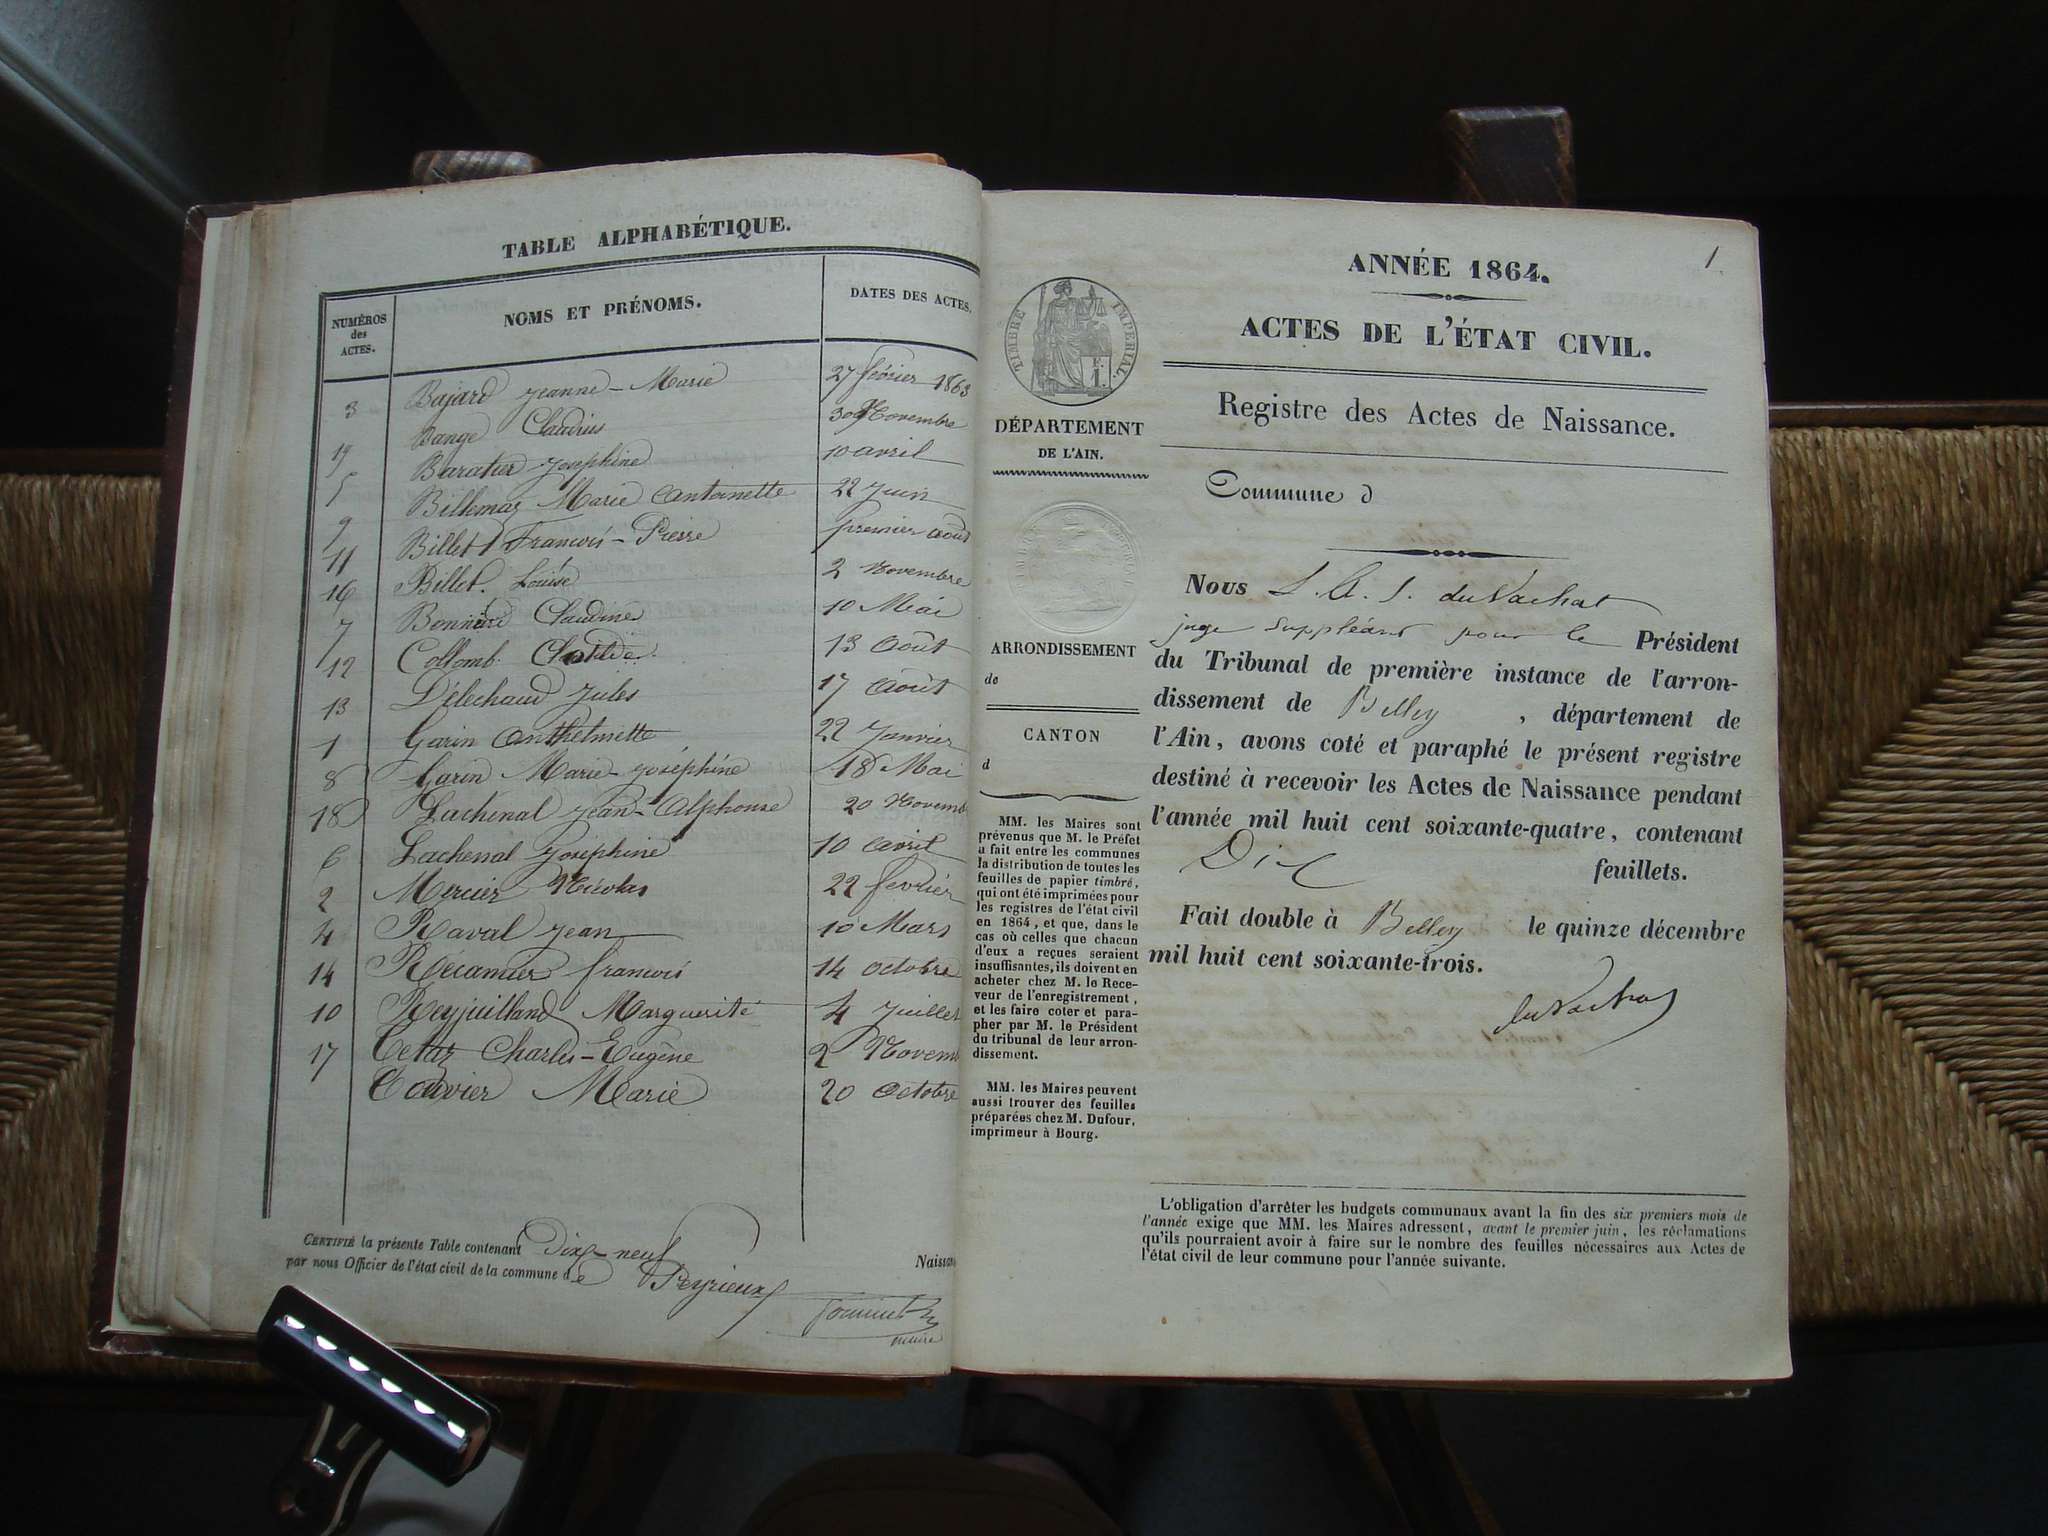 TABLE ALPHABÉTIQUE.
NUMÉROS des ACTES.
NOMS ET PRÉNOMS.
DATES DES ACTES.
3 Bajard Jeanne-Marie 27 février 1863
19 Bange Claudius 30 Novembre
5 Baratier Joséphine 10 avril
9 Billemaz Marie Antoinette 22 Juin
11 Billet François-Pierre premier août
16 Billet Louise 2 Novembre
7 Claudine 10 Mai
12 Collomb Clotilde 13 Août
13 Délechaud Jules 17 août
1 Garin Anthelmette 22 Janvier
8 Garin Marie-Joséphine 18 Mai
18 Lachenal Jean-Alphonse 20 Novemb
6 Lachenal Joséphine 10 avril
2 Mercier Nicolas 22 février
4 Raval Jean 10 Mars
14 Récamier françois 14 octobre
10 Reyjuilland Marguerite 4 Juillet
17 Tetaz Charles-Eugène 2 Novem
Couvier Marie 20 octobre
CERTIFIÉ la présente Table contenant Dix-neuf Naissan
par nous Officier de l'état civil de la commune de Peyrieux
maire
1.
ANNÉE 1864.
ACTES DE L'ÉTAT CIVIL.
Registre des Actes de Naissance.
TIMBRE IMPÉRIAL.
DÉPARTEMENT
DE L'AIN.
ARRONDISSEMENT
de
CANTON
d
MM. les Maires sont
prévenus que M. le Préfet
a fait entre les communes
la distribution de toutes les
feuilles de papier timbré,
qui ont été imprimées pour
les registres de l'état civil
en 1864, et que, dans le
cas où celles que chacun
d'eux a reçues seraient
insuffisantes, ils doivent en
acheter chez M. le Rece-
veur de l'enregistrement,
et les faire coter et para-
pher par M. le Président
du tribunal de leur arron-
dissement.
MM. les Maires peuvent
aussi trouver des feuilles
préparées chez M. Dufour,
imprimeur à Bourg.
Commune d
Nous L. A. J. du Vachat
juge suppléant pour le Président
du Tribunal de première instance de l'arron-
dissement de Belley, département de
l'Ain, avons coté et paraphé le présent registre
destiné à recevoir les Actes de Naissance pendant
l'année mil huit cent soixante-quatre, contenant
Dix feuillets.
Fait double à Belley le quinze décembre
mil huit cent soixante-trois.
du Vachat
L'obligation d'arrêter les budgets communaux avant la fin des six premiers mois de
l'année exige que MM. les Maires adressent, avant le premier juin, les réclamations
qu'ils pourraient avoir à faire sur le nombre des feuilles nécessaires aux Actes de
l'état civil de leur commune pour l'année suivante.